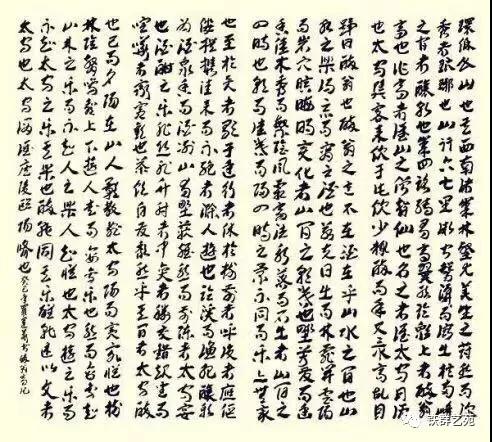 環滁皆山也其西南諸峰林壑尤美望之蔚然而深
秀者琅琊也山行六七里漸聞水聲潺潺而瀉出于兩峰
之間者釀泉也峰回路轉有亭翼然臨於泉上者醉翁
亭也作亭者誰山之僧智仙也名之者誰太守自謂
也太守與客來飲于此飲少輒醉而年又最高故自
號曰醉翁也醉翁之意不在酒在乎山水之間也山
水之樂得之心而寓之酒也若夫日出而林霏開雲歸
而巖穴暝晦明變化者山間之朝暮也野芳發而幽
香佳木秀而繁陰風霜高潔水落而石出者山間之
四時也朝而往暮而歸四時之景不同而樂亦無窮
也至於負者歌于途行者休於樹前者呼後者應傴
僂提攜往來而不絕者滁人遊也臨溪而漁溪深而魚肥釀泉
為酒泉香而酒洌山肴野蔌雜然而前陳者太守宴
也宴酣之樂非絲非竹射者中弈者勝觥籌交錯起坐而
喧嘩者眾賓歡也蒼顏白髮頹然乎其間者太守醉
也已而夕陽在山人影散亂太守歸而賓客從也樹
林陰翳鳴聲上下遊人去而禽鳥樂也然而禽鳥知
山林之樂而不知人之樂人知從太守遊而樂而
不知太守之樂其樂也醉能同其樂醒能述以文者
太守也太守謂誰廬陵歐陽脩也
癸巳年
铁群艺苑